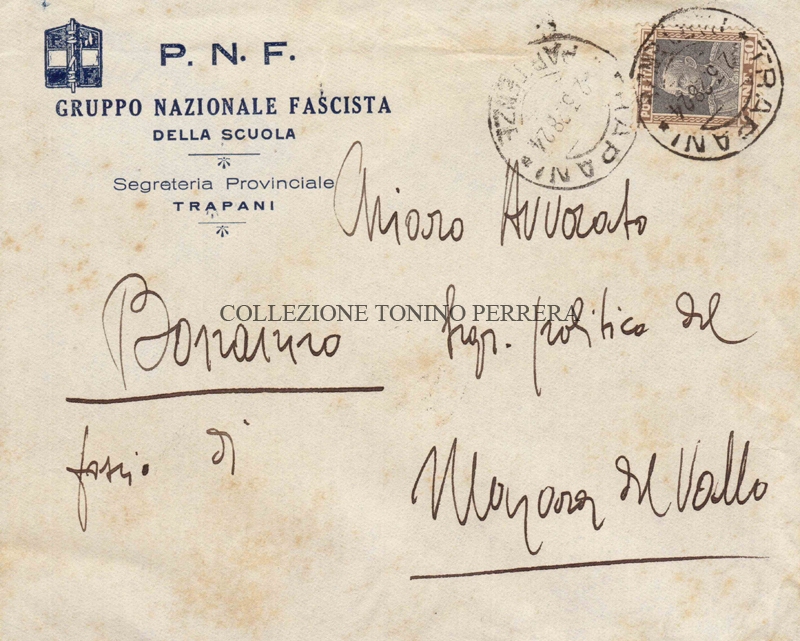 P. N. F.
GRUPPO NAZIONALE FASCISTA
DELLA SCUOLA
Segreteria Provinciale
TRAPANI
TRAPANI
2.5.28 24
PARTENZE
TRAPANI
POSTE ITALIANE
50
Chiaro Avvocato
Bonanno
COLLEZIONE TONINO PERRERA
Segr. politico del
fascio di
Mazara del Vallo